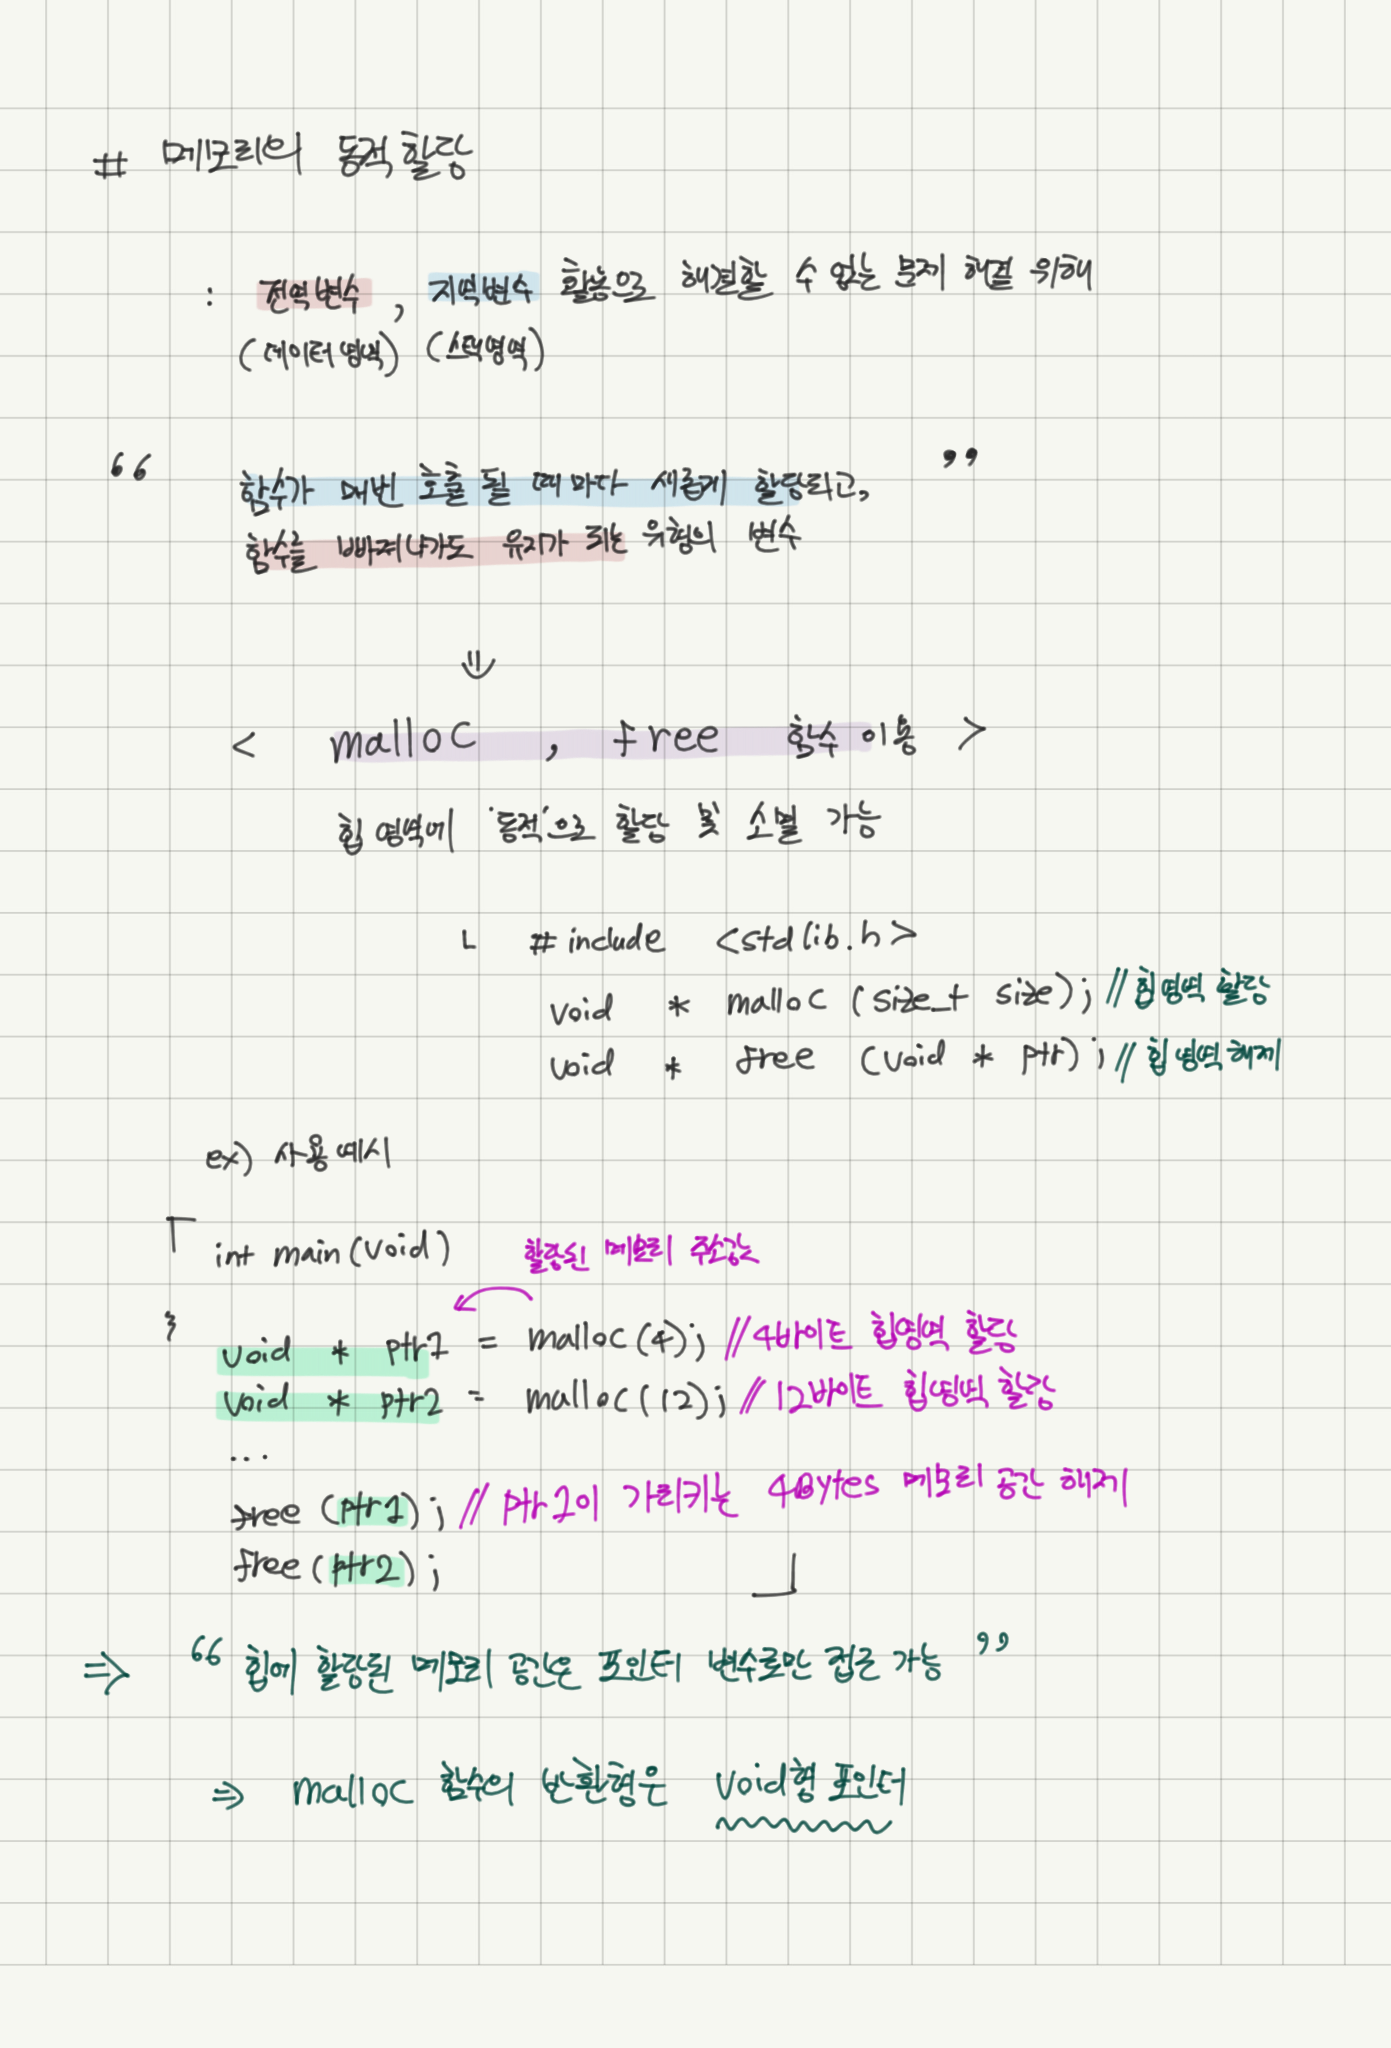 # 메모리의 동적할당
: 전역변수, 지역변수 활용으로 해결할 수 없는 문제 해결 위해
(데이터영역) (스택영역)
“ 함수가 매번 호출 될 때 마다 새롭게 할당되고, ”
함수를 빠져나가도 유지가 되는 유형의 변수
⇓
< malloc , free 함수 이용 >
힙 영역에 '동적'으로 할당 및 소멸 가능
└ #include <stdlib.h>
void * malloc (size_t size); // 힙영역 할당
void * free (void * ptr); // 힙 영역 해제
ex) 사용예시
┌ int main(void)
할당된 메모리 주소값
{
void * ptr1 = malloc(4); // 4바이트 힙영역 할당
void * ptr2 = malloc(12); // 12바이트 힙영역 할당
...
free (ptr1); // ptr1이 가리키는 4Bytes 메모리 공간 해제
free (ptr2); ┘
⇒ “ 힙에 할당된 메모리 공간은 포인터 변수로만 접근 가능 ”
⇒ malloc 함수의 반환형은 void형 포인터